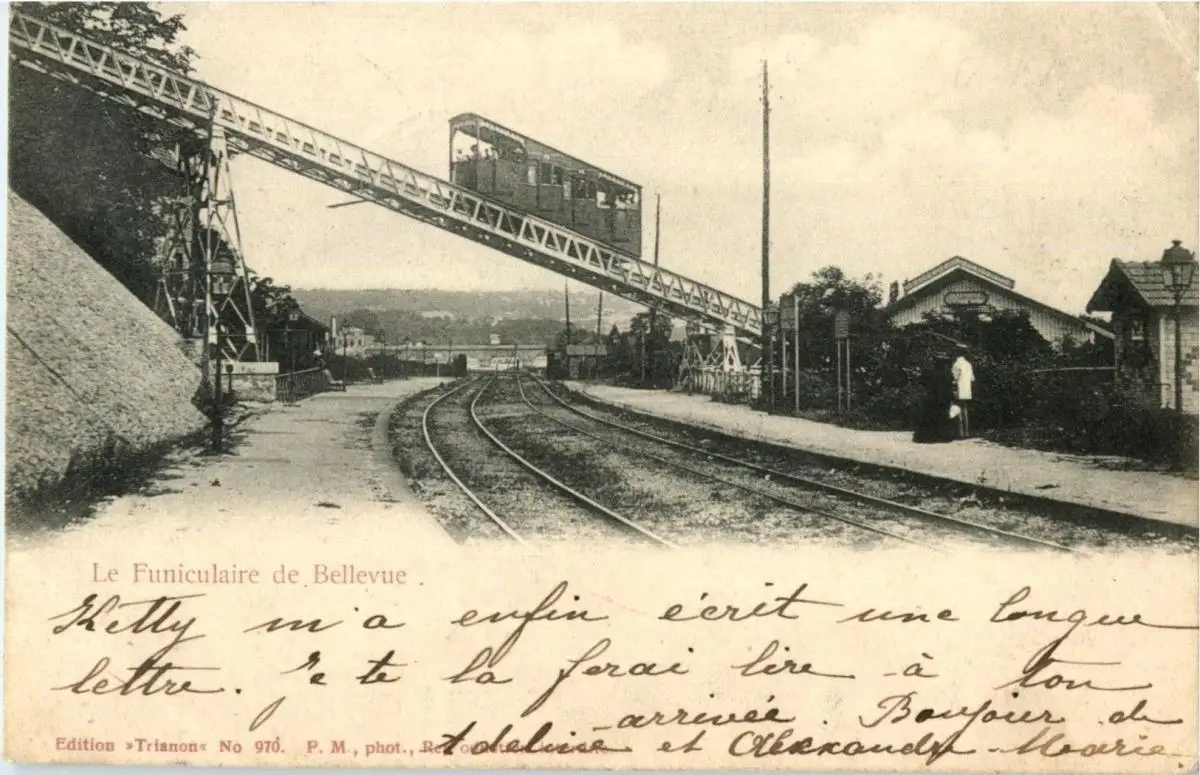 Le Funiculaire de Bellevue
Kitty m'a enfin écrit une longue
lettre. Je te la ferai lire à ton
arrivée. Bonjour de
Adeline et Alexandre - Marie -
Edition »Trianon« No 970. P. M., phot.,